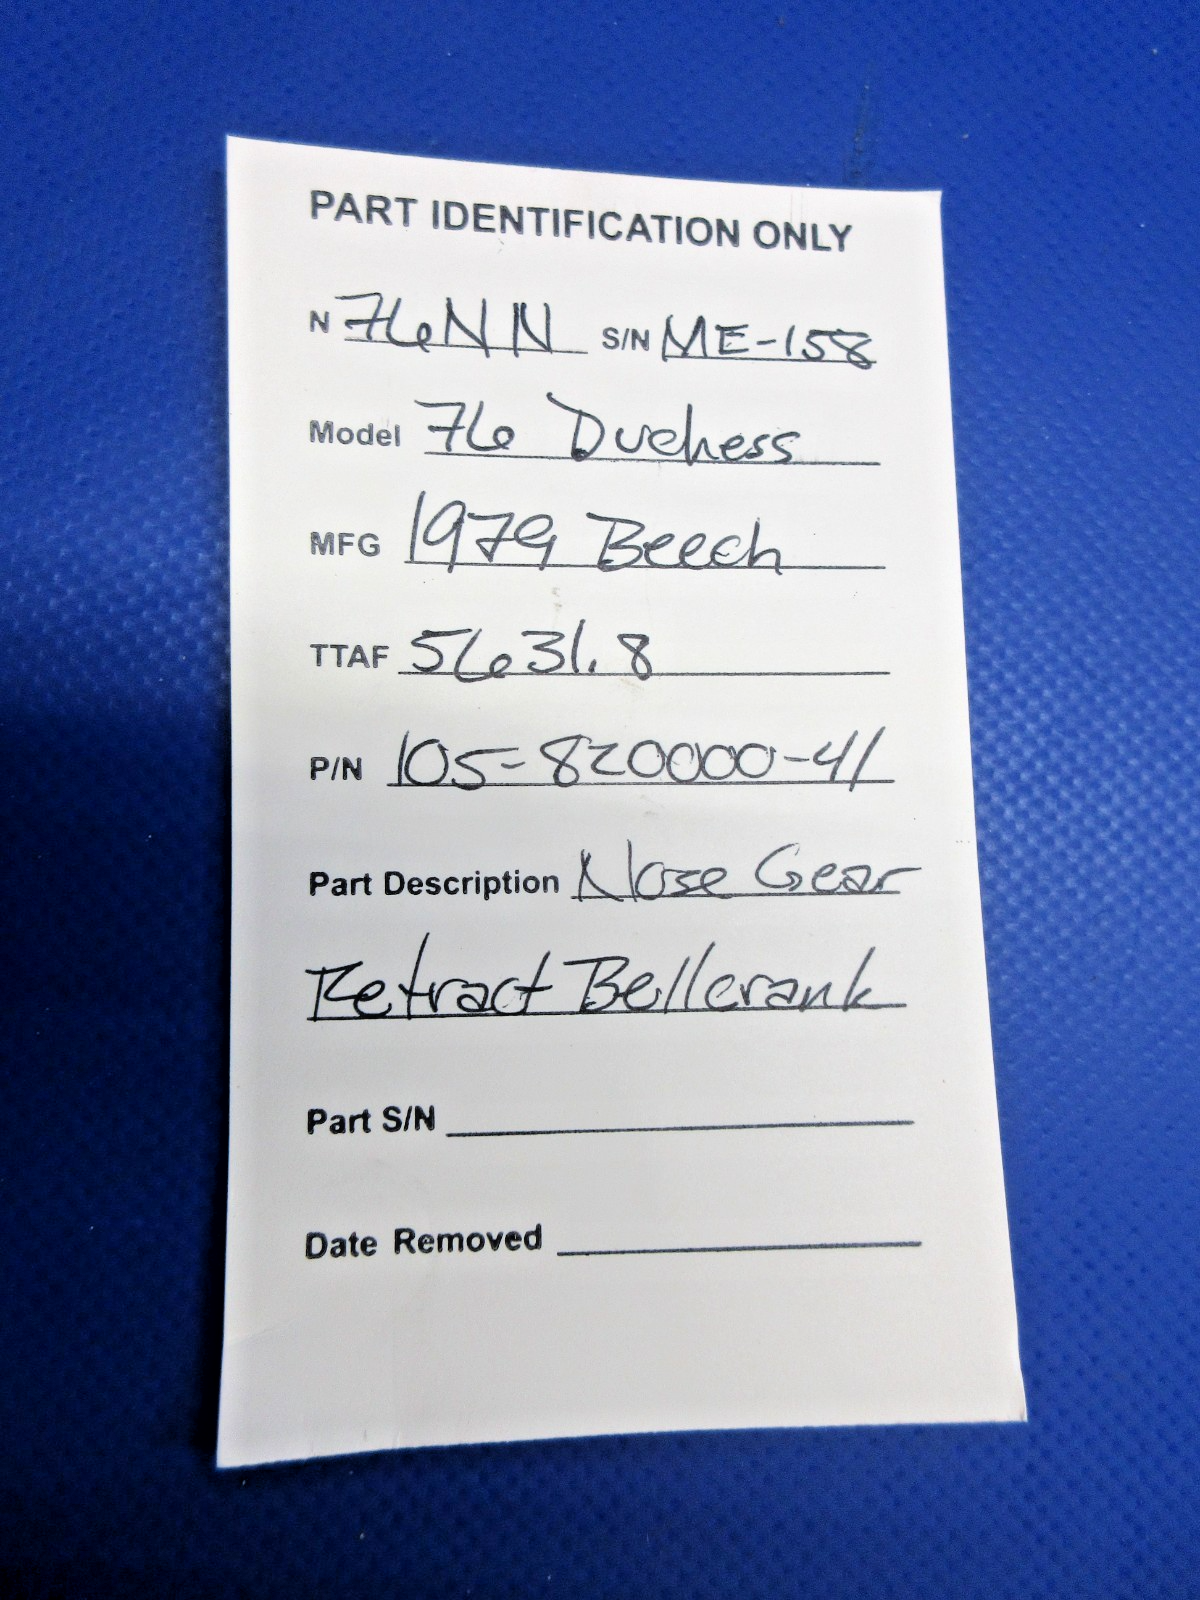 PART IDENTIFICATION ONLY
N 76NN S/N ME-158
Model 76 Duchess
MFG 1979 Beech
TTAF 5631.8
P/N 105-820000-41
Part Description Nose Gear
Retract Bellcrank
Part S/N
Date Removed